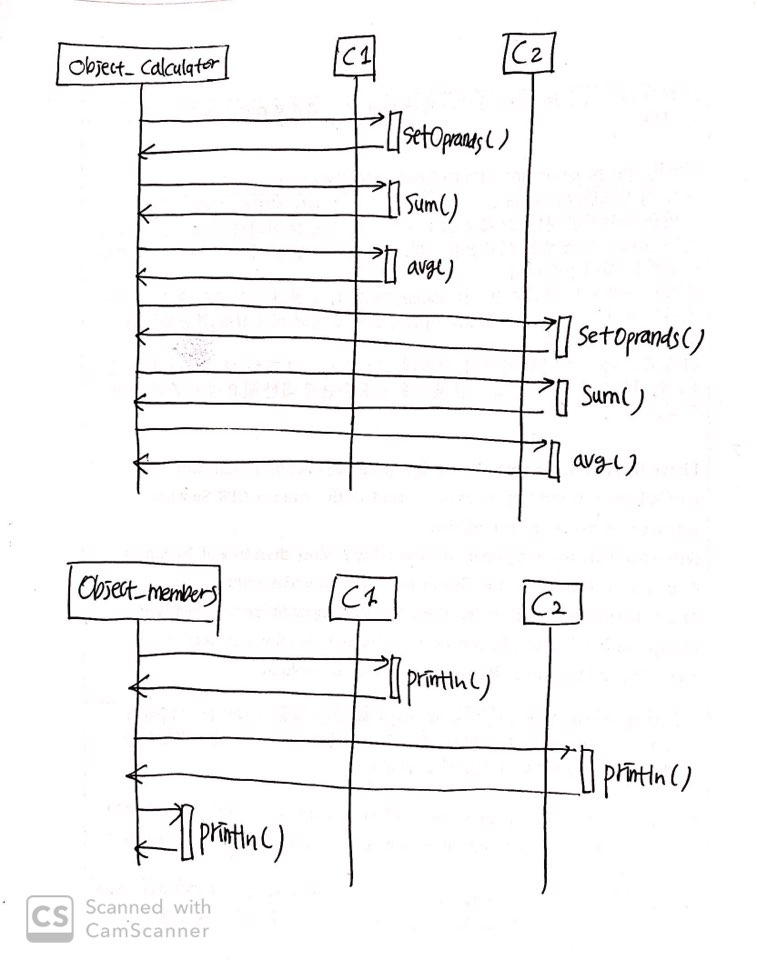 Object_Calculator C1 C2
SetOprands()
Sum()
avg()
SetOprands()
Sum()
avg()
Object_members C1 C2
println()
println()
println()
CS Scanned with
CamScanner